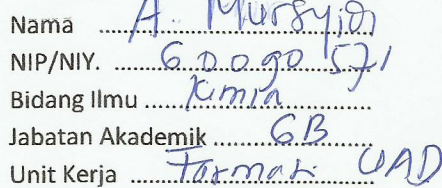 Nama A. Mursyidi
NIP/NIY. 60090571
Bidang Ilmu Kimia
Jabatan Akademik GB
Unit Kerja Farmasi UAD